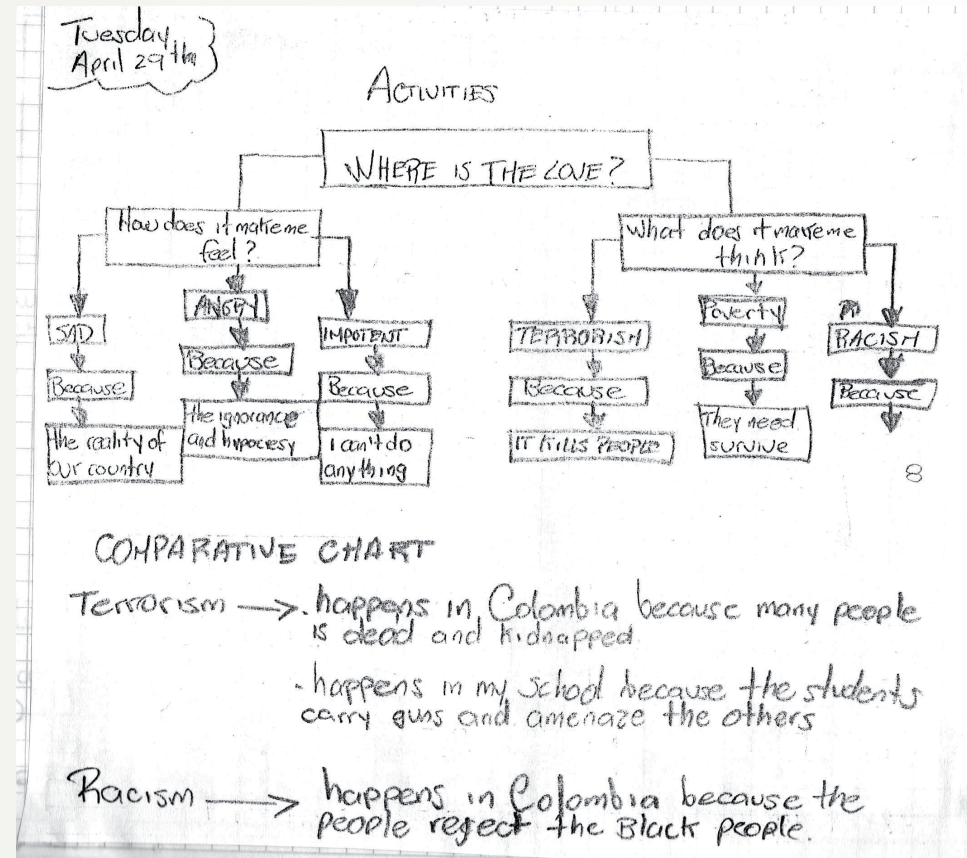 Tuesday
April 29th
ACTIVITIES
WHERE IS THE LOVE?
How does it make me
feel?
SAD
Because
the reality of
our country
ANGRY
Because
the ignorance
and hypocresy
IMPOTENT
Because
I can't do
anything
What does it make me
think?
TERRORISM
Because
IT KILLS PEOPLE
Poverty
Because
They need
survive
RACISM
Because
8
COMPARATIVE CHART
Terrorism → . happens in Colombia because many people
is dead and kidnapped
- happens in my school because the students
carry guns and amenaze the others
Racism → happens in Colombia because the
people reject the Black people.